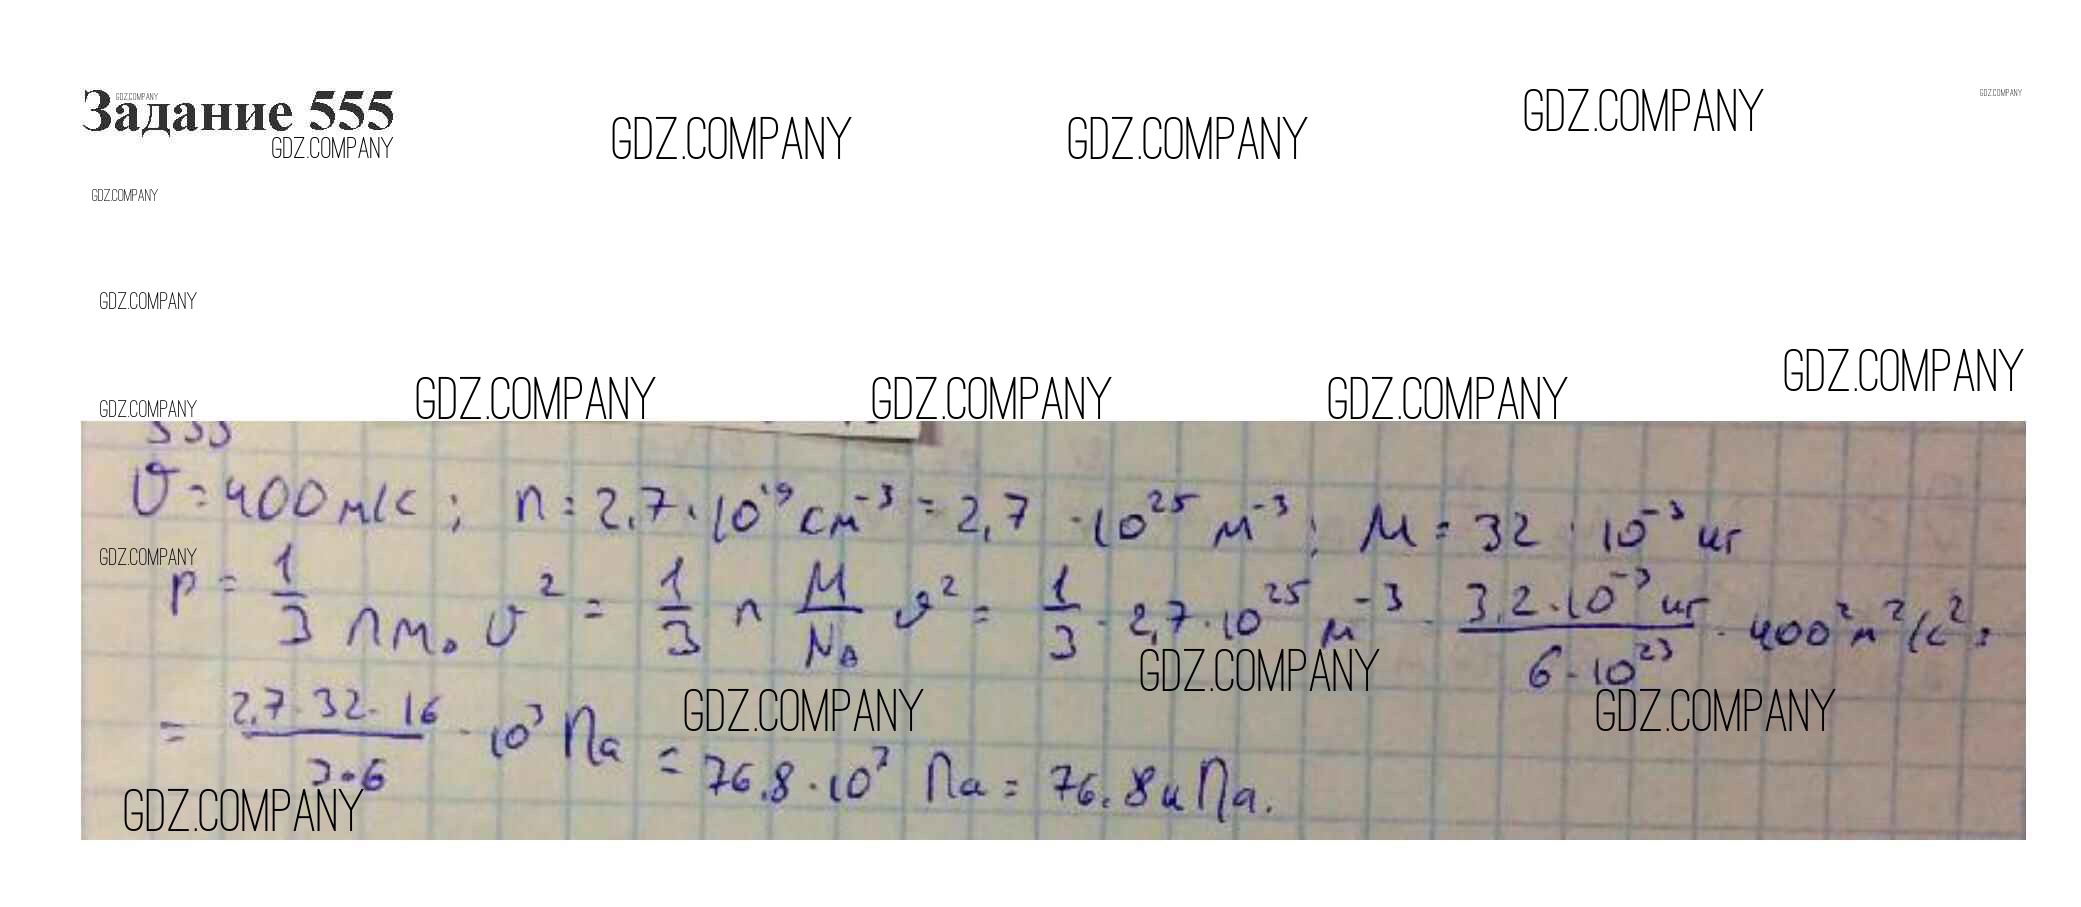 Задание 555
GDZ.COMPANY
GDZ.COMPANY
GDZ.COMPANY
GDZ.COMPANY
GDZ.COMPANY
GDZ.COMPANY
GDZ.COMPANY
GDZ.COMPANY
GDZ.COMPANY
GDZ.COMPANY
GDZ.COMPANY
GDZ.COMPANY
GDZ.COMPANY
555
υ = 400 м/с ; n = 2,7 · 10¹⁹ см⁻³ = 2,7 · 10²⁵ м⁻³ ; M = 32 · 10⁻³ кг
GDZ.COMPANY
p = 1/3 n m₀ υ² = 1/3 n M/Nₐ υ² = 1/3 · 2,7 · 10²⁵ м⁻³ · 3,2 · 10⁻³ кг / 6 · 10²³ · 400² м²/с² =
GDZ.COMPANY
GDZ.COMPANY
GDZ.COMPANY
= 2,7 · 32 · 16 / 3 · 6 · 10³ Па = 76,8 · 10³ Па = 76,8 кПа.
GDZ.COMPANY